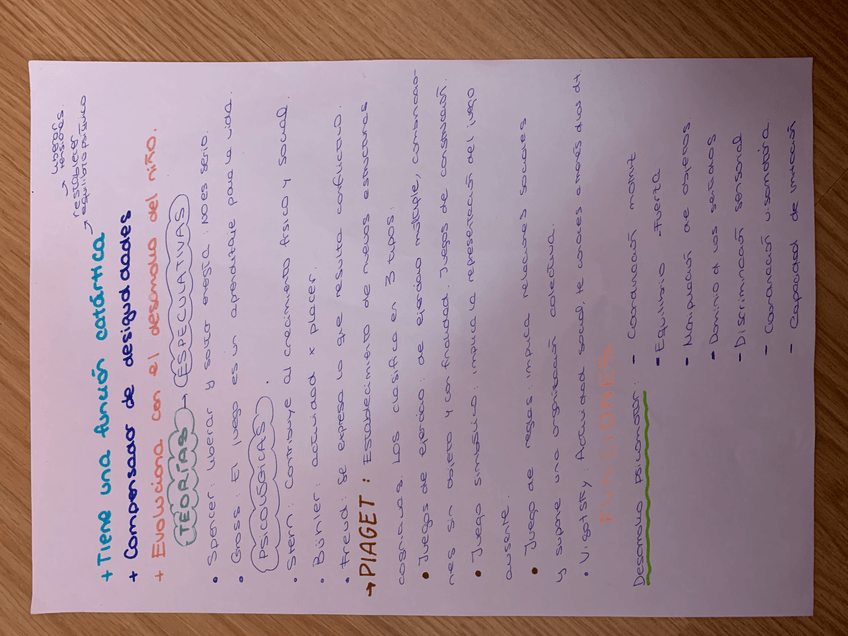 liberar
tensiones
restablecer
equilibrio psíquico
+ Tiene una función catártica
+ Compensador de desigualdades
+ Evoluciona con el desarrollo del niño.
TEORÍAS → ESPECULATIVAS
• Spencer: liberar y sacar energía. No es serio.
• Gross: El juego es un aprendizaje para la vida.
PSICOLÓGICAS.
• Stern: Contribuye al crecimiento físico y social.
• Bühler: actividad x placer.
• Freud: Se expresa lo que resulta conflictivo.
→ PIAGET: Establecimiento de nuevas estructuras
cognitivas. Los clasifica en 3 tipos.
• Juegos de ejercicio: de ejercicio múltiple, combinacio-
nes sin objeto y con finalidad. Juegos de construcción.
• Juego simbólico: implica la representación del juego
ausente.
• Juego de reglas: implica relaciones sociales
y supone una organización colectiva.
• Vigotsky: Actividad social, se conoce a través dl
FUNCIONES
Desarrollo psicomotor: - Coordinación motriz
- Equilibrio - Fuerza
- Manipulación de objetos
- Dominio d los sentidos
- Discriminación sensorial
- Coordinación visomotora
- Capacidad de imitación